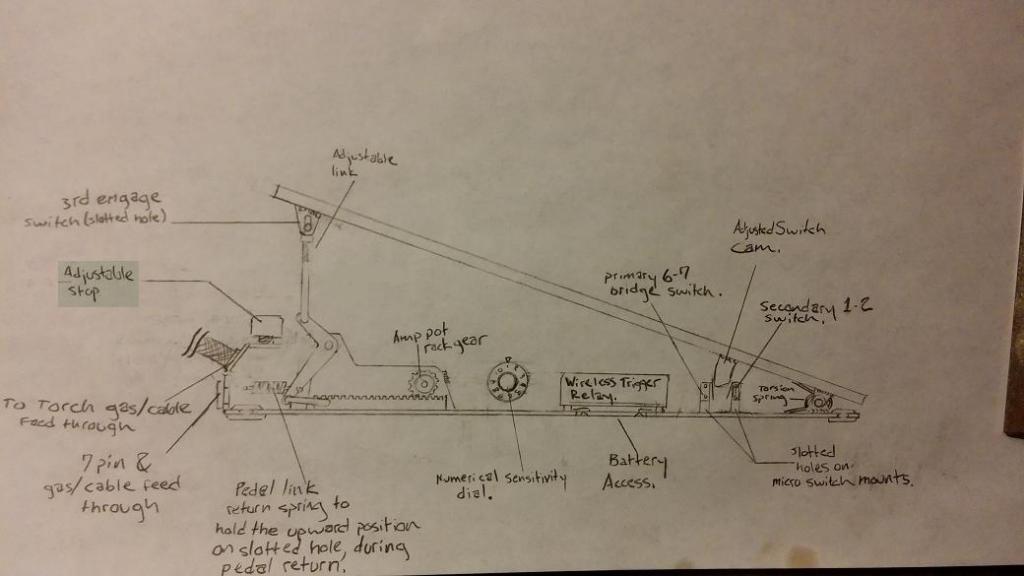 Adjustable
link
3rd engage
switch (slotted hole)
Adjustable
stop
Adjusted Switch
Cam.
primary 6-7
bridge switch.
Secondary 1-2
switch.
Amp pot
rack gear
Wireless Trigger
Relay.
Torsion
spring
To Torch gas/cable
feed through
7 pin &
gas/cable feed
through
Pedal link
return spring to
hold the upward position
on slotted hole, during
pedal return.
Numerical sensitivity
dial.
Battery
Access.
slotted
holes on
micro switch mounts.